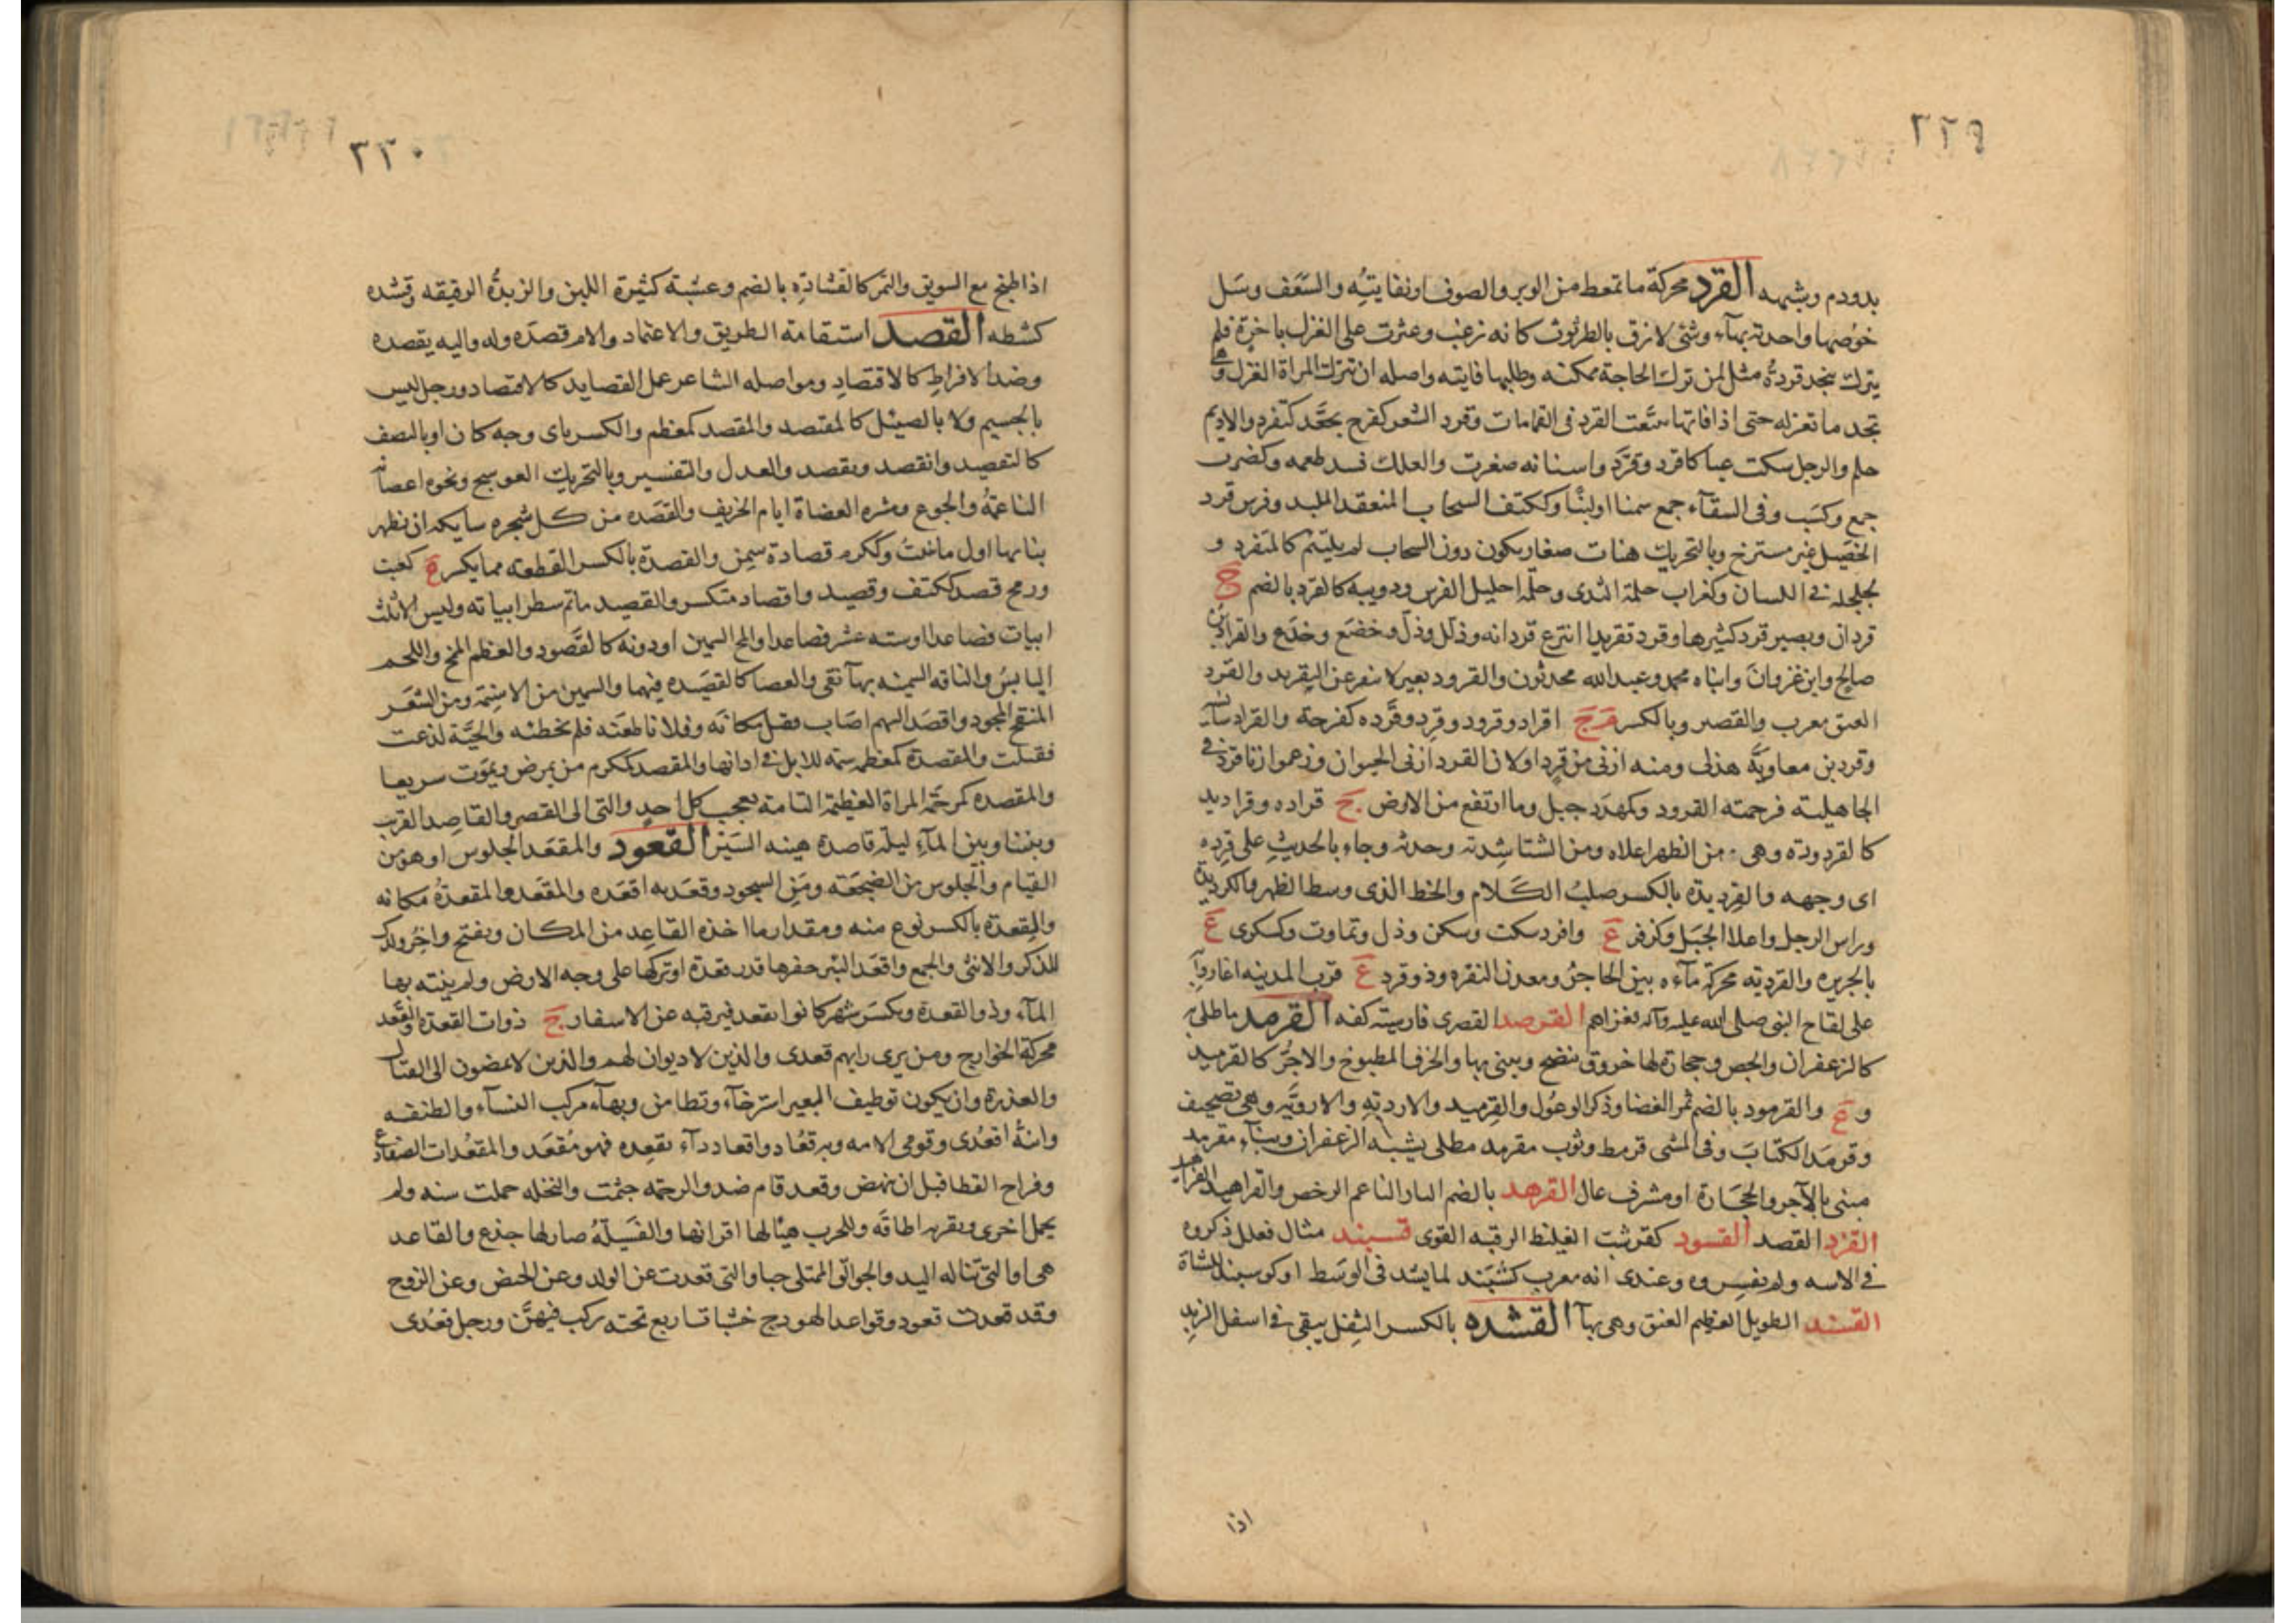 ٢٢٩
بدودم وبشبهه القرد محركة ما تمعط من الوبر والصوف او نفايتُه والسَّعَف وسَل
خوُصها واحدته بهآء وشئ لازق بالطرثوث كانه زغب وعثرت على الغزل باخرة فلم
يترك بنجد قردةً مثل لمن ترك الحاجة ممكنه وطلبها فايته واصله ان تترك المراة الغزل وهى
تجد ما تغزله حتى اذا فاتها تتبَّعت القرد فى القمامات وقرد الشعر كفرح تجعَّد كتقرد والاديم
حلم والرجل سكت عيا كاقرد وتقرَّد واسنانه صغرت والعلك فسد طعمه وكضرب
جمع وكسَب وفى السقآء جمع سمنا او لبنًا وككتف السحاب المنعقد الملبد وفرس قرد
الخصَيل غير مسترخ وبالتحريك هنات صغار يكون دون السحاب لم يلتئم كالمتقرد و
لجلجله فى اللسان وكغراب حلمة الثدى وحلمة احليل الفرس ودويبه كالقرد بالضم ج
قردان وبعير قرد كثيرها وقرد تقريدا انتزع قردانه وذلل وذلّ وخضَع وخدَع والقراد بن
صالح وابن غزوانَ وابناه محمد وعبدالله محدثون والقرود بعير لا ينفر عن التقريد والقَرد
العنق معرب والقصر وبالكسر م ج اقراد وقرود وقِرد وقَرده كفرحة والقراد سايسه
وقرد بن معاويةَ هذلى ومنه ازنى من قرد او لان القرد ازنى الحيوان وزعموا زنا قرد فى
الجاهلية فرجمته القرود وكمهدَد جبل وما ارتفع من الارض ج قراده وقراديد
كالقردودة وهى من الظهر اعلاه ومن الشتا شدته وحدته وجاء بالحديث على قرده
اى وجهه والقرديدة بالكسر صلبُ الكَلام والخط الذى وسط الظهر والكرديدة
وراس الرجل واعلا الجَبَل وكزفر ع وافرد سكت وسكن وذل وتماوت وكسكرى ع
بالجزيره والقرديه محركة مآءه بين الحاجِر ومعدن النقره وذو قرد ع قرب المدينه اغاروا
على لقاح النبى صلى الله عليه وآله فغزاهم القرصد القصرى فارسيته كفه القرمد ما طلى به
كالزعفران والجص وحجارة لها خروق ينضج ويبنى بها والخزف المطبوخ والاجُرّ كالقرميد
و ع والقرمود بالضم ثمر الغضا وذكر الوعُول والقِرميد والاردبّه والارويَّه وهى تصحيف
وقرمَد الكتابَ وفى المشى قرمط وثوب مقرمد مطلى بشبه الزعفران وبنآء مقرمد
مبنى بالآجر والحجَارة او مشرف عال القرهد بالضم التار الناعم الرخص والقراهيد الفراهيد
القزد القصد القسود كقرشب الغليظ الرقبه القوى قسبند مثال فعلل ذكروه
فى الابنيه ولم يفسروه وعندى انه معرب كشبَند لما يشد فى الوسَط او كوسبند للشاة
القسند الطويل العظيم العنق وهى بهآ القشده بالكسر الثفل يبقى فى اسفل الزبد
اذا
٢٣٠
اذا طبخ مع السويق والتمر كالقشادةِ بالضم وعشبة كثيرة اللبن والزبدةُ الرقيقه وقشده
كشطه القصد استقامة الطريق والاعتماد والام قصدَه وله واليه يقصده
وضد الافراطِ كالاقتصادِ ومواصله الشاعر عمل القصايد كالاقتصاد ورجل ليس
بالجسيم ولا بالضئيل كالمقتصد والمقصد كمعظم والكسر باى وجه كان او بالنصف
كالتقصيد وانقصد وتقصد والعدل والتقسير وبالتحريك العوسج ونحوه اعصانه
الناعمةُ والجوع ومشره العضاة ايام الخريف والقصَده من كل شجره شايكه ان يظهر
نباتها اول ما نبتُ وككرم قصادة سمِن والقصدة بالكسر القطعة مما يكسر ج كعنب
ورمح قصد ككتف وقصيد واقصاد متكسر والقصيد ما تم سطر ابياته وليس الا ثلث
ابيات فصاعدا او سته عشر فصاعدا والمخ السمين او دونه كالقَصود والعظم المخ واللحم
اليابسُ والناقه السمينه بهآ نقى والعصا كالقصَيده فيهما والسمين من الاسنِمَة ومن الشعَر
المنقح المجود واقصَد السهم اصَاب فقتل مكانَه وفلانا طعَنه فلم يخطئه والحيَّة لدغت
فقتلت والمقصدة كمعظمه سمة للابل فى اذانها والمقصد ككرم من يمرض ويموَت سريعا
والمقصده كمرحَمة المراة العظيمة التامة يعجب كل احدٍ والتى الى القصر والقاصِد القريب
وبيننا وبين المآءِ ليلة قاصدة هينه السَير القعود والمقعَد الجلوس او هو من
القيام والجلوس من الضجعَه ومَن السجود وقعَد به اقعَده والمقعَد والمقعدةُ مكانه
والقِعدة بالكسر نوع منه ومقدار ما اخذه القاعِد من المكان وبفتح واخِر ولدك
للذكر والانثى والجمع واقعَد البئر حفرها قدر قعدة او تركها على وجه الارض ولم ينته بها
المآء وذو القعدة ويكسَر شهر كانوا يقعد فيه رقبه عن الاسفار ج ذوات القعدة والقَعَد
محركة الخوارج ومن يرى رايهم قعدى والذين لا ديوان لهم والذين لا يمضون الى القتال
والعذرة وان يكون توظيف البعير استرخآء وتطامن وبهآء مركب النسآء والطنفسه
وابنةُ اقعُدى وقومى الامه وبه قعُاد واقعاد دآء يقعِده فهو مُقعَد والمقعُدات الضفادع
وفراح القطا قبل ان ينهض وقعد قام ضد والرخمه جثمت والنخله حملت سنه ولم
يحمل اخرى وبقرنه اطاقَه وللحرب هيّا لها اقرانها والفَسيلةُ صار لها جذع والقاعد
هى او التى تناله اليد والجوالق الممتلى حبا والتى قعدت عن الولد وعن الحيض وعن الزوج
وقد قعدت قعود وقواعد الهودج خشبات اربع تحته ركب فيهنّ ورجل قعُدى